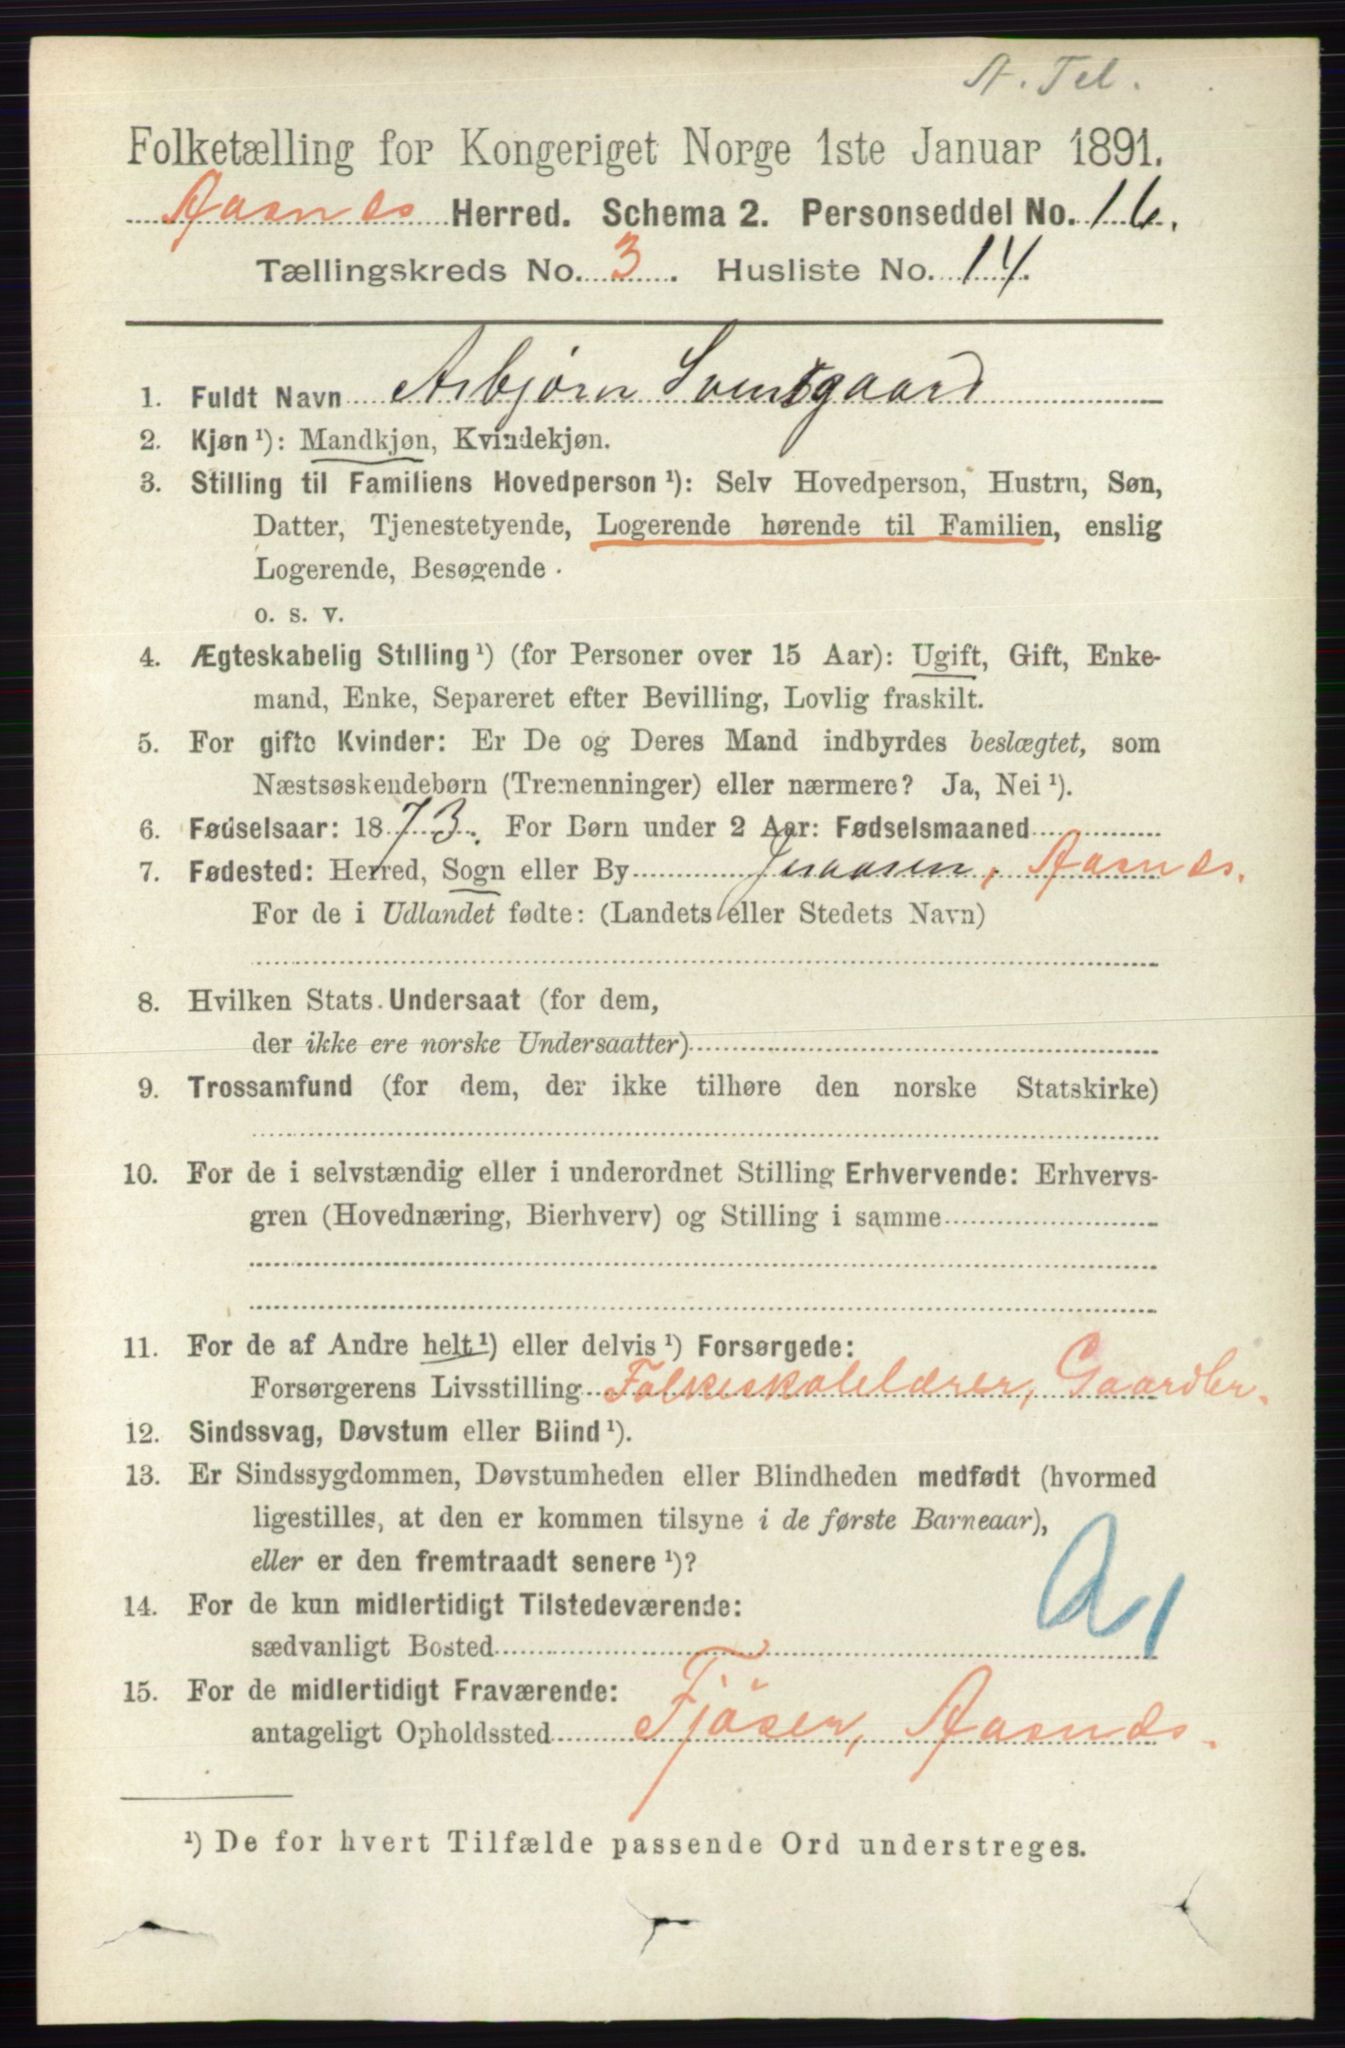 A. Tel.
Folketælling for Kongeriget Norge 1ste Januar 1891.
Aasnes Herred. Schema 2. Personseddel No. 16.
Tællingskreds No. 3. Husliste No. 14.
1. Fuldt Navn Asbjørn Svensgaard
2. Kjøn ¹): Mandkjøn, Kvindekjøn.
3. Stilling til Familiens Hovedperson ¹): Selv Hovedperson, Hustru, Søn,
Datter, Tjenestetyende, Logerende hørende til Familien, enslig
Logerende, Besøgende
o. s. v.
4. Ægteskabelig Stilling ¹) (for Personer over 15 Aar): Ugift, Gift, Enke-
mand, Enke, Separeret efter Bevilling, Lovlig fraskilt.
5. For gifte Kvinder: Er De og Deres Mand indbyrdes beslægtet, som
Næstsøskendebørn (Tremenninger) eller nærmere? Ja, Nei ¹).
6. Fødselsaar: 1873. For Børn under 2 Aar: Fødselsmaaned
7. Fødested: Herred, Sogn eller By Aasnes.
For de i Udlandet fødte: (Landets eller Stedets Navn)
8. Hvilken Stats Undersaat (for dem,
der ikke ere norske Undersaatter)
9. Trossamfund (for dem, der ikke tilhøre den norske Statskirke)
10. For de i selvstændig eller i underordnet Stilling Erhvervende: Erhvervs-
gren (Hovednæring, Bierhverv) og Stilling i samme
11. For de af Andre helt ¹) eller delvis ¹) Forsørgede:
Forsørgerens Livsstilling Folkeskolelærer, Gaardbr.
12. Sindssvag, Døvstum eller Blind ¹).
13. Er Sindssygdommen, Døvstumheden eller Blindheden medfødt (hvormed
ligestilles, at den er kommen tilsyne i de første Barneaar),
eller er den fremtraadt senere ¹)?
14. For de kun midlertidigt Tilstedeværende:
sædvanligt Bosted
15. For de midlertidigt Fraværende:
antageligt Opholdssted Fjöser, Aasnes.
¹) De for hvert Tilfælde passende Ord understreges.